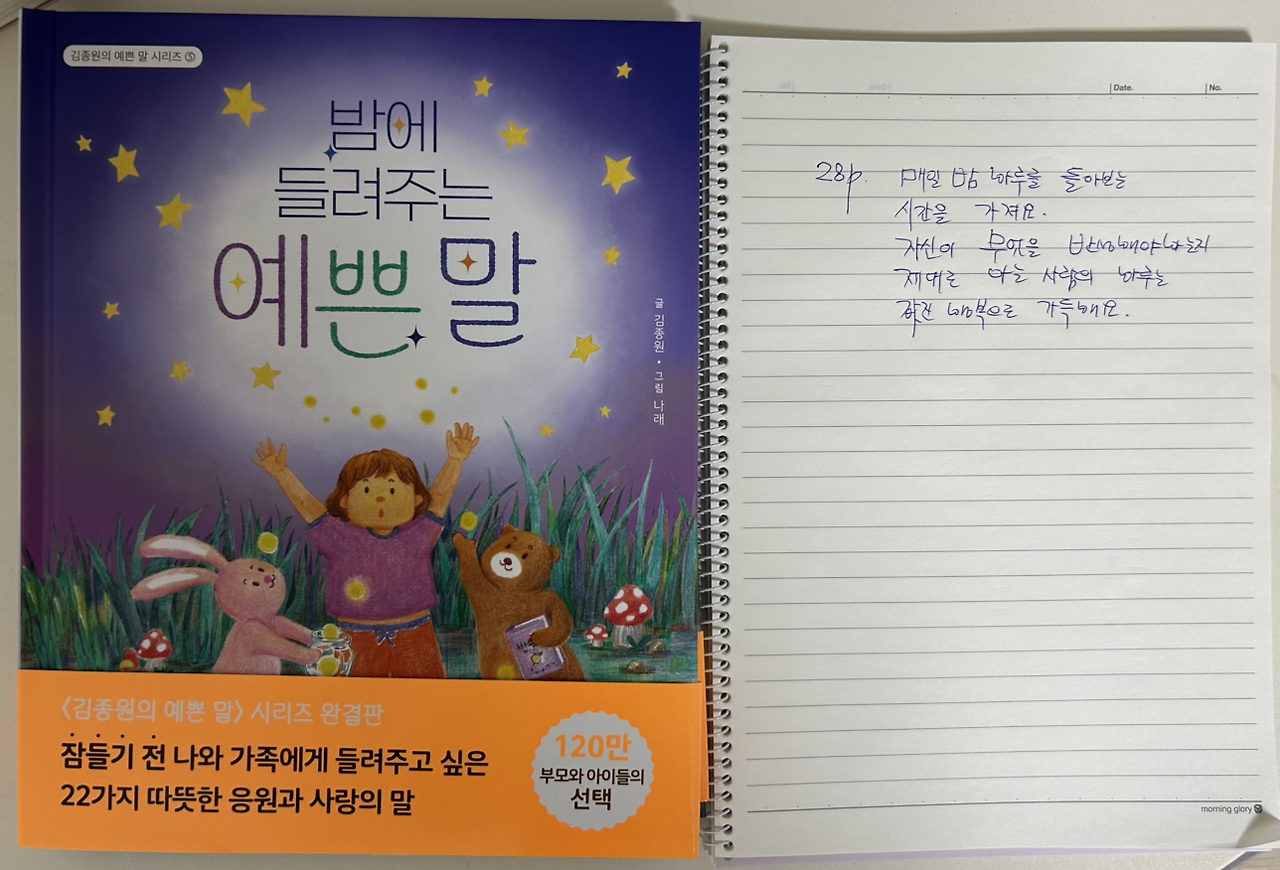 김종원의 예쁜 말 시리즈 ⑤
밤에
들려주는
예쁜 말
글 김종원 • 그림 나래
〈김종원의 예쁜 말〉 시리즈 완결판
잠들기 전 나와 가족에게 들려주고 싶은
22가지 따뜻한 응원과 사랑의 말
120만
부모와 아이들의
선택
Date.
No.
28p. 매일 밤 하루를 돌아보는
시간을 가져요.
자신이 무엇을 반성해야하는지
제대로 아는 사람의 하루는
값진 행복으로 가득해요.
morning glory